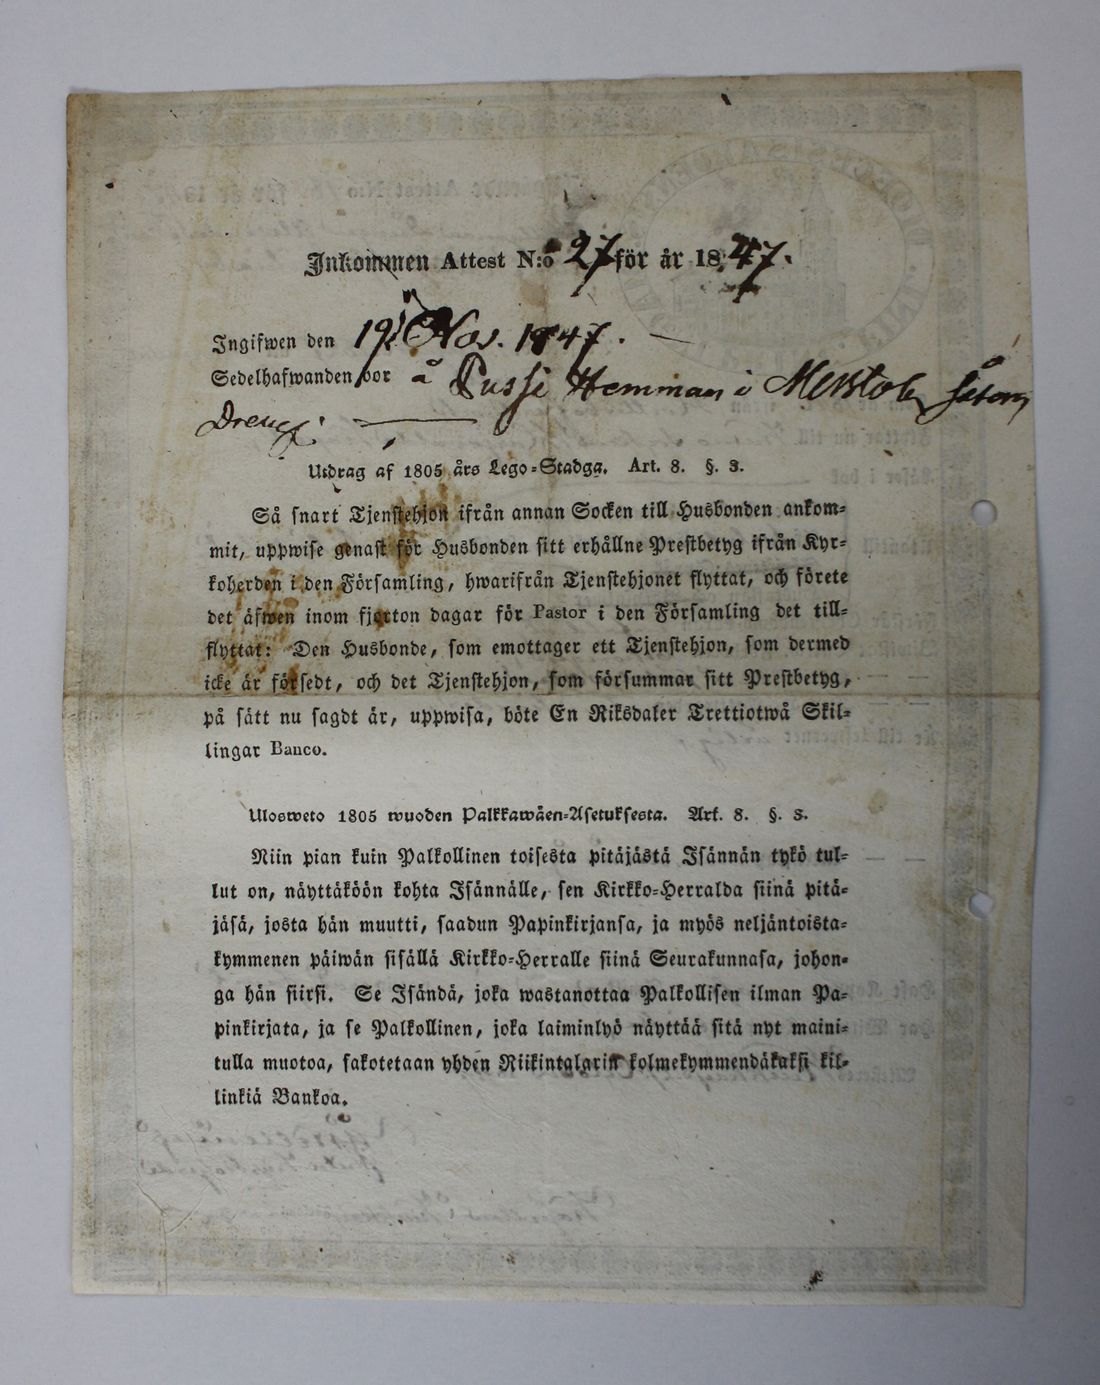 Inkommen Attest N:o 27 för år 1847.
Ingifwen den 19 Nov. 1847.
Sedelhafwanden bor å Pussi Hemman i Merstola såsom
Dreng.
Utdrag af 1805 års Lego-Stadga. Art. 8. §. 3.
Så snart Tjenstehjon ifrån annan Socken till Husbonden ankom-
mit, uppwise genast för Husbonden sitt erhållne Prestbetyg ifrån Kyr-
koherden i den Församling, hwarifrån Tjenstehjonet flyttat, och förete
det äfwen inom fjorton dagar för Pastor i den Församling det till-
flyttat: Den Husbonde, som emottager ett Tjenstehjon, som dermed
icke är försedt, och det Tjenstehjon, som försummar sitt Prestbetyg,
på sätt nu sagdt är, uppwisa, böte En Riksdaler Trettiotwå Skil-
lingar Banco.
Ulosweto 1805 wuoden Palkkawäen-Asetuksesta. Art. 8. §. 3.
Niin pian kuin Palkollinen toisesta pitäjästä Isännän tykö tul-
lut on, näyttäköön kohta Isännälle, sen Kirkko-Herralda siinä pitä-
jäsä, josta hän muutti, saadun Papinkirjansa, ja myös neljäntoista-
kymmenen päiwän sisällä Kirkko-Herralle siinä Seurakunnasa, johon-
ga hän siirsi. Se Isändä, joka wastanottaa Palkollisen ilman Pa-
pinkirjata, ja se Palkollinen, joka laiminlyö näyttää sitä nyt maini-
tulla muotoa, sakotetaan yhden Riikintalarin kolmekymmendäkaksi kil-
linkiä Bankoa.